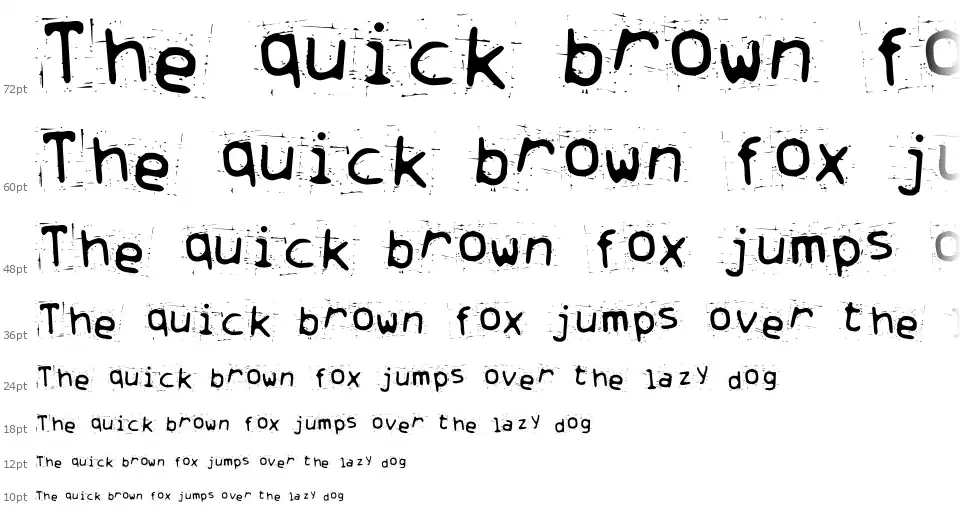 72pt The quick brown fo
60pt The quick brown fox ju
48pt The quick brown fox jumps o
36pt The quick brown fox jumps over the
24pt The quick brown fox jumps over the lazy dog
18pt The quick brown fox jumps over the lazy dog
12pt The quick brown fox jumps over the lazy dog
10pt The quick brown fox jumps over the lazy dog